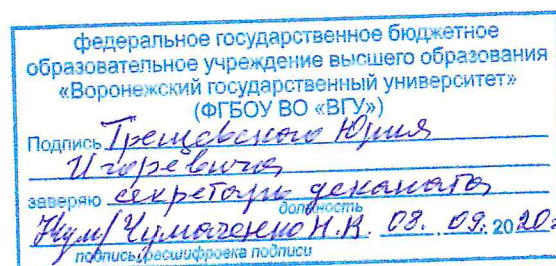 федеральное государственное бюджетное
образовательное учреждение высшего образования
«Воронежский государственный университет»
(ФГБОУ ВО «ВГУ»)
Подпись Трещевского Юрия
Игоревича
заверяю секретарь деканата
должность
Чумаченко Н.Н. 08. 09. 2020г
подпись, расшифровка подписи